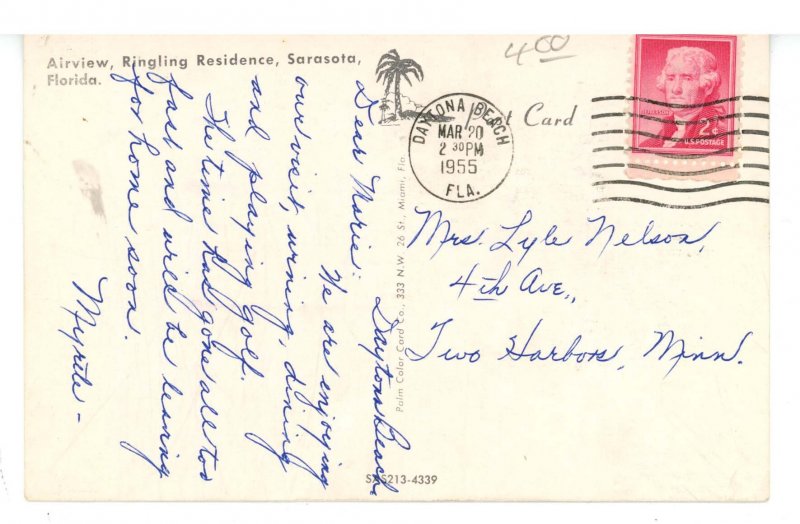 Airview, Ringling Residence, Sarasota,
Florida.
400
Post Card
DAYTONA BEACH
MAR 20
2 30 PM
1955
FLA.
JEFFERSON
2¢
U.S. POSTAGE
Dear Marie: Daytona Beach,
We are enjoying
our visit, wining, dining
and playing golf.
The time has gone all too
fast and we'll be leaving
for home soon.
Myrtle -
Mrs. Lyle Nelson,
4th Ave.,
Two Harbors, Minn.
Palm Color Card Co., 333 N.W. 26 St., Miami, Fla.
SAS213-4339